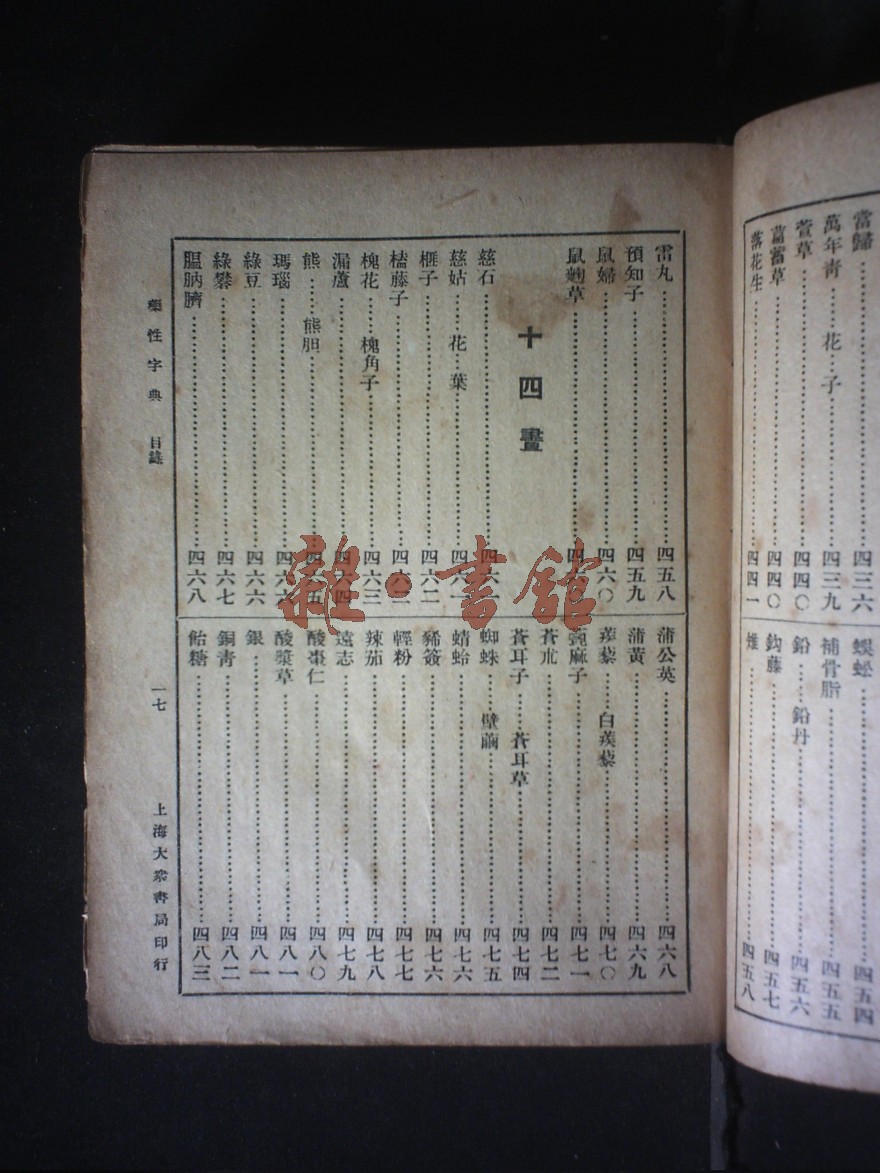 當歸……四三六
萬年青……花……子……四三九
萱草……四四〇
萹蓄草……四四〇
落花生……四四一
蜈蚣……四五四
補骨脂……四五五
鉛……鉛丹……四五六
鈎藤……四五七
雉……四五八
雷丸……四五八
預知子……四五九
鼠婦……四六〇
鼠麴草……四六〇
十四畫
慈石……四六一
慈姑……花……葉……四六一
榧子……四六二
榼藤子……四六二
槐花……槐角子……四六三
漏蘆……四六四
熊……熊胆……四六五
瑪瑙……四六六
綠豆……四六六
綠礬……四六七
膃肭臍……四六八
蒲公英……四六八
蒲黃……四六九
蒺藜……白蒺藜……四七〇
蓖麻子……四七一
蒼朮……四七二
蒼耳子……蒼耳草……四七四
蜘蛛……壁繭……四七五
蜻蛉……四七六
豨簽……四七六
輕粉……四七七
辣茄……四七八
遠志……四七九
酸棗仁……四八〇
酸漿草……四八一
銀……四八一
銅青……四八二
飴糖……四八三
藥性字典 目錄 一七 上海大衆書局印行
雜·書館